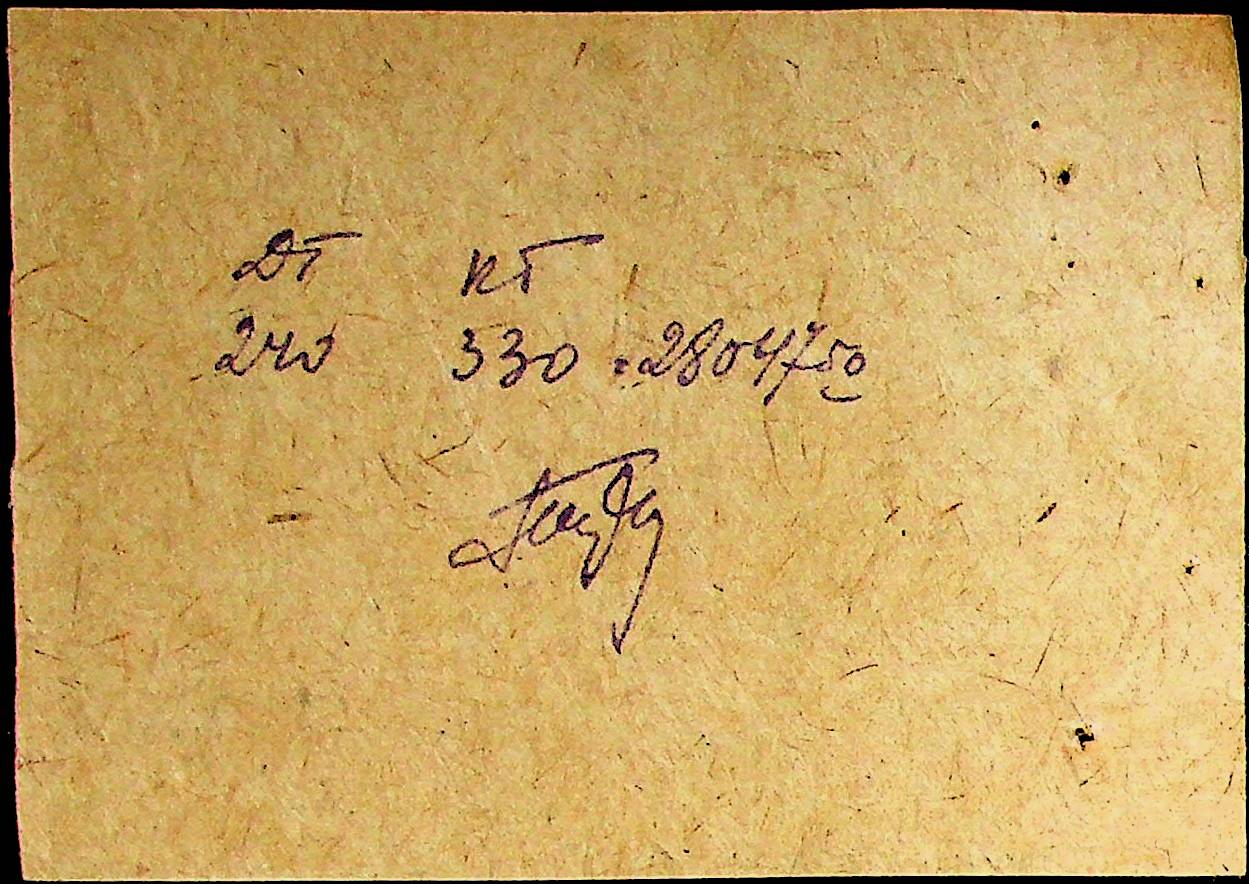 Дт Кт
240 330 = 28047 50